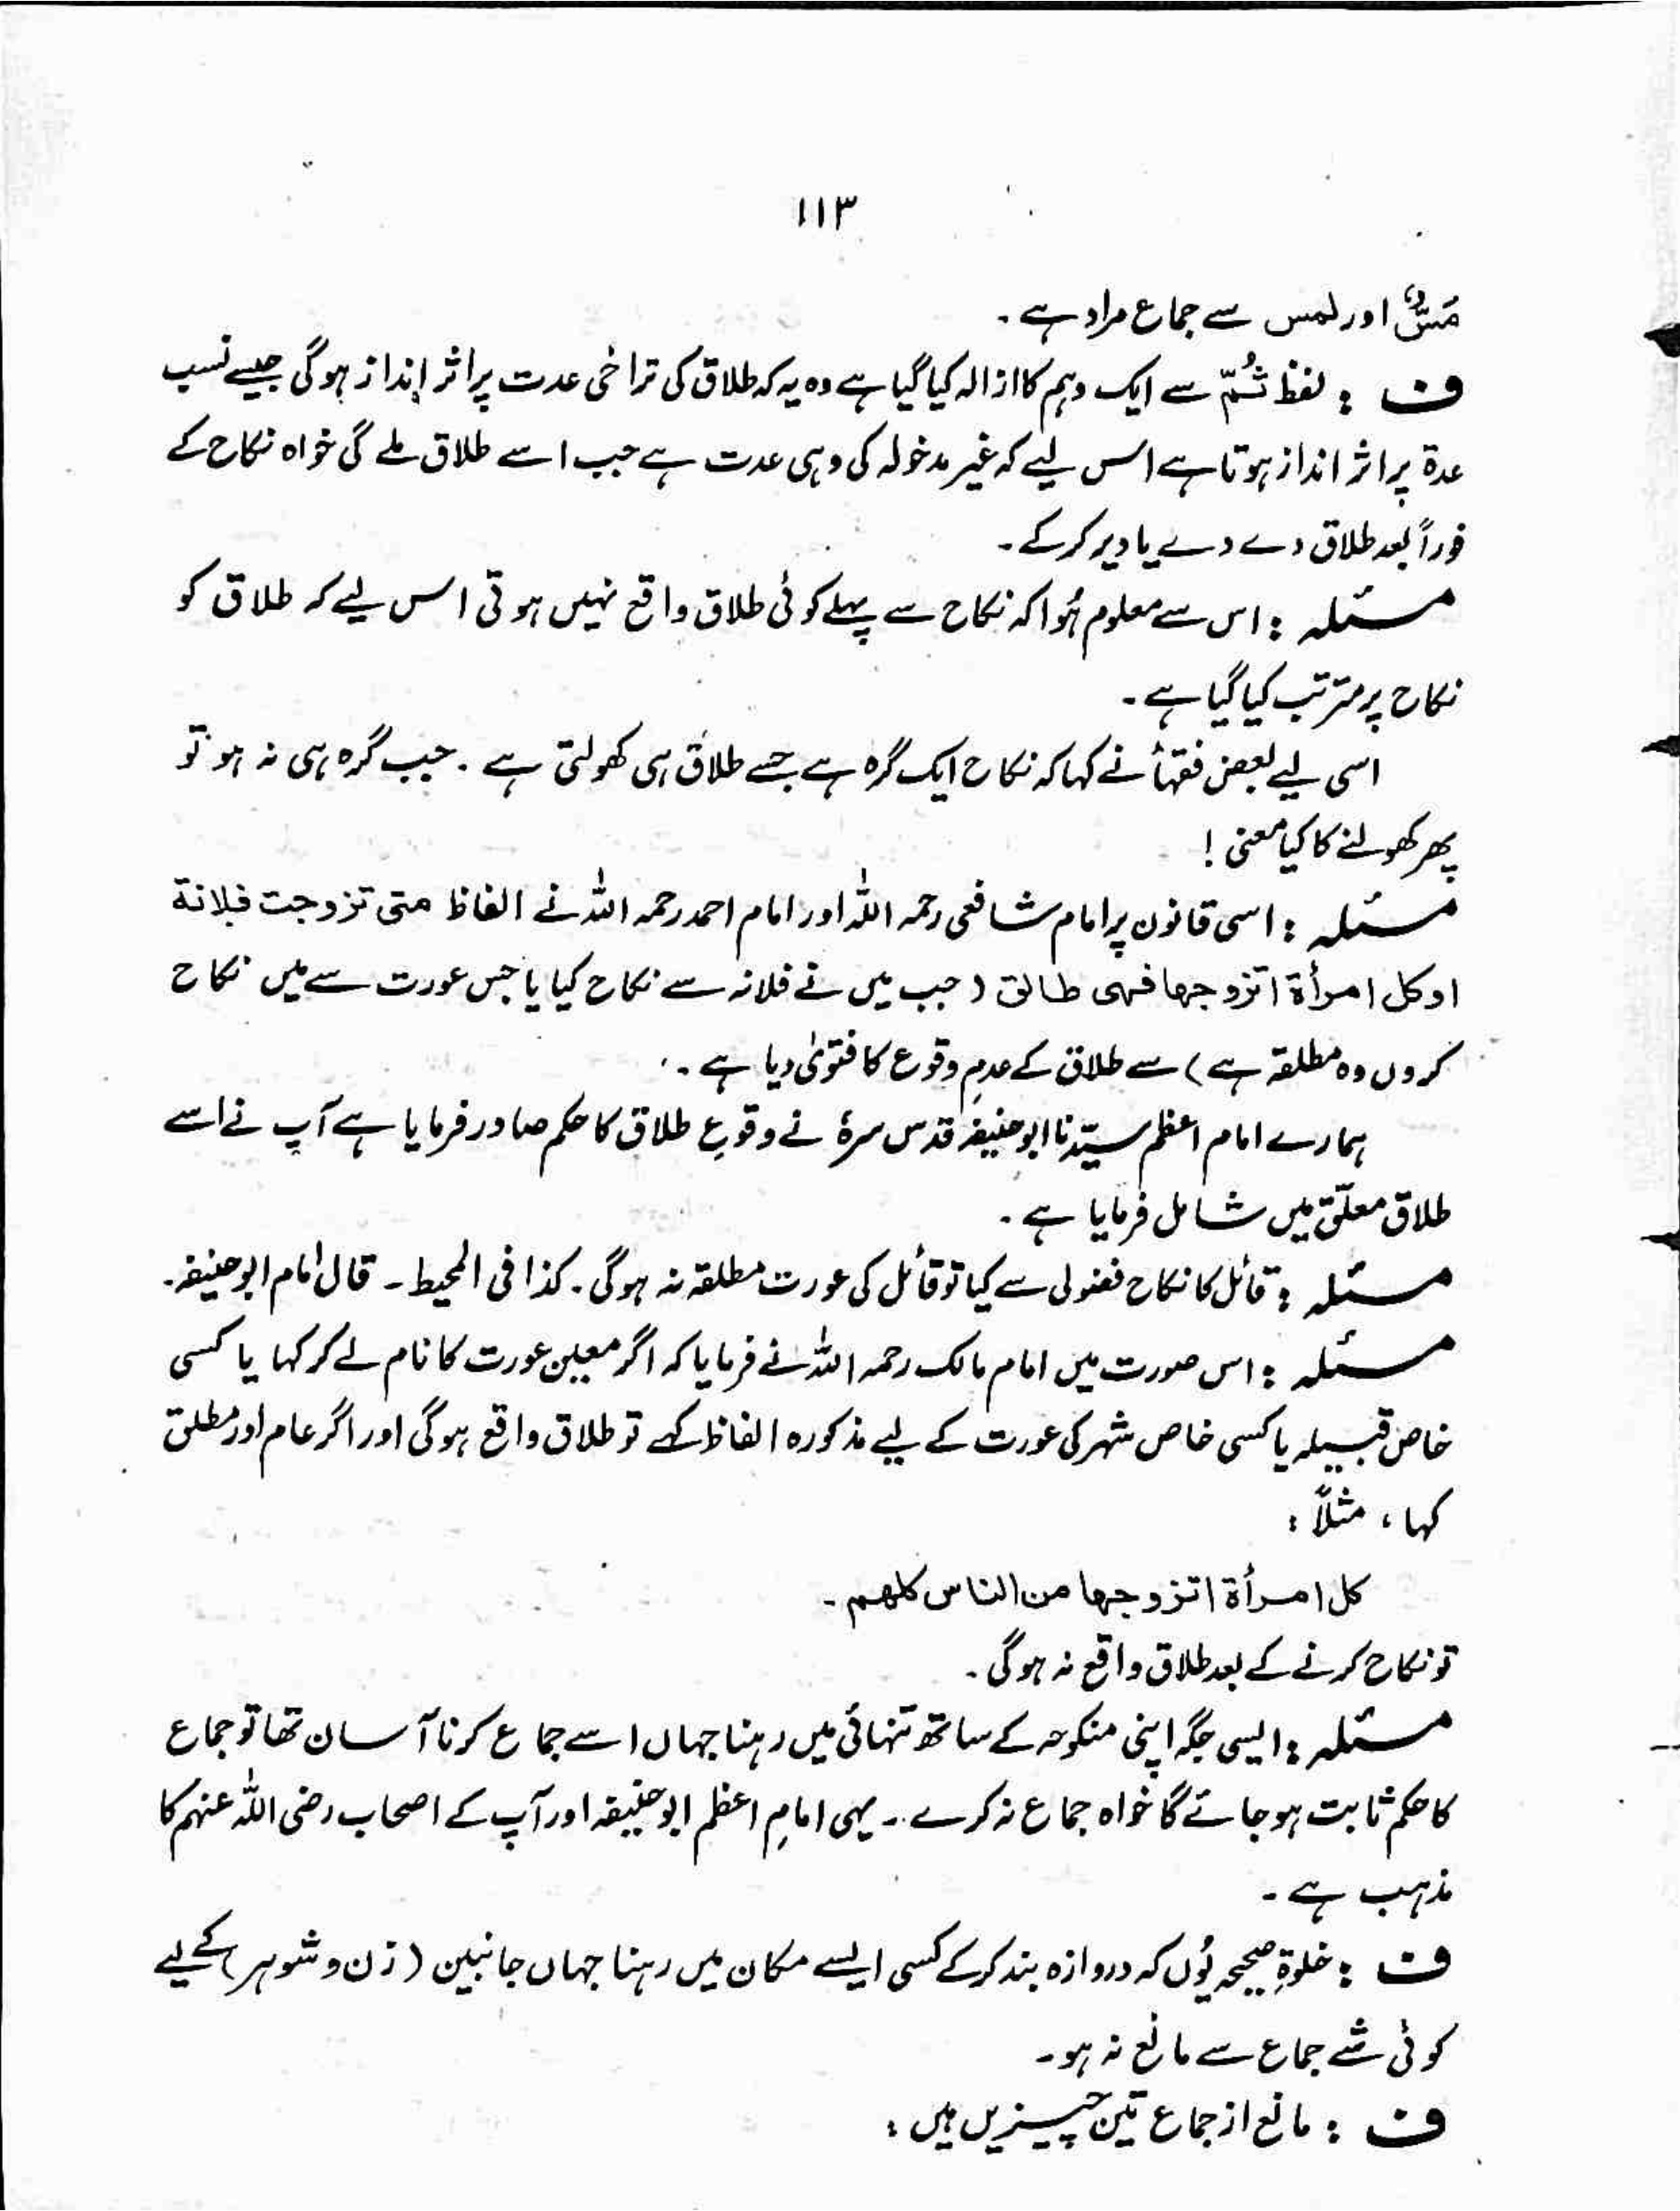 ۱۱۳
مَسٌّ اور لمس سے جماع مراد ہے ۔
ف : لفظ ثُمّ سے ایک وہم کا ازالہ کیا گیا ہے وہ یہ کہ طلاق کی تراخی عدت پر اثر انداز ہوگی جیسے نسب
عدۃ پر اثر انداز ہوتا ہے اس لیے کہ غیر مدخولہ کی وہی عدت ہے جب اسے طلاق ملے گی خواہ نکاح کے
فوراً بعد طلاق دے دے یا دیر کرکے ۔
مسئلہ : اس سے معلوم ہُوا کہ نکاح سے پہلے کوئی طلاق واقع نہیں ہوتی اس لیے کہ طلاق کو
نکاح پر مترتب کیا گیا ہے ۔
اسی لیے بعض فقہأ نے کہا کہ نکاح ایک گرہ ہے جسے طلاق ہی کھولتی ہے ۔ جب گرہ ہی نہ ہو تو
پھر کھولنے کا کیا معنی !
مسئلہ : اسی قانون پر امام شافعی رحمہ اللہ اور امام احمد رحمہ اللہ نے الفاظ متی تزوجت فلانة
اوکل امرأة اتزوجها فهی طالق ( جب میں نے فلانہ سے نکاح کیا یا جس عورت سے میں نکاح
کروں وہ مطلقہ ہے ) سے طلاق کے عدمِ وقوع کا فتویٰ دیا ہے ۔
ہمارے امام اعظم سیّدنا ابوحنیفہ قدس سرہٗ نے وقوعِ طلاق کا حکم صادر فرمایا ہے آپ نے اسے
طلاق معلّق میں شامل فرمایا ہے ۔
مسئلہ : قائل کا نکاح فضولی سے کیا تو قائل کی عورت مطلقہ نہ ہوگی ۔ کذا فی المحیط ۔ قال امام ابوحنیفہ ۔
مسئلہ : اس صورت میں امام مالک رحمہ اللہ نے فرمایا کہ اگر معین عورت کا نام لے کر کہا یا کسی
خاص قبیلہ یا کسی خاص شہر کی عورت کے لیے مذکورہ الفاظ کہے تو طلاق واقع ہوگی اور اگر عام اور مطلق
کہا ، مثلاً :
کل امرأة اتزوجها من الناس کلهم ۔
تو نکاح کرنے کے بعد طلاق واقع نہ ہوگی ۔
مسئلہ : ایسی جگہ اپنی منکوحہ کے ساتھ تنہائی میں رہنا جہاں اسے جماع کرنا آسان تھا تو جماع
کا حکم ثابت ہوجائے گا خواہ جماع نہ کرے ۔ یہی امامِ اعظم ابوحنیفہ اور آپ کے اصحاب رضی اللہ عنہم کا
مذہب ہے ۔
ف : خلوۃِ صحیحہ یُوں کہ دروازہ بند کرکے کسی ایسے مکان میں رہنا جہاں جانبین ( زن و شوہر ) کے لیے
کوئی شے جماع سے مانع نہ ہو ۔
ف : مانع از جماع تین چیزیں ہیں :